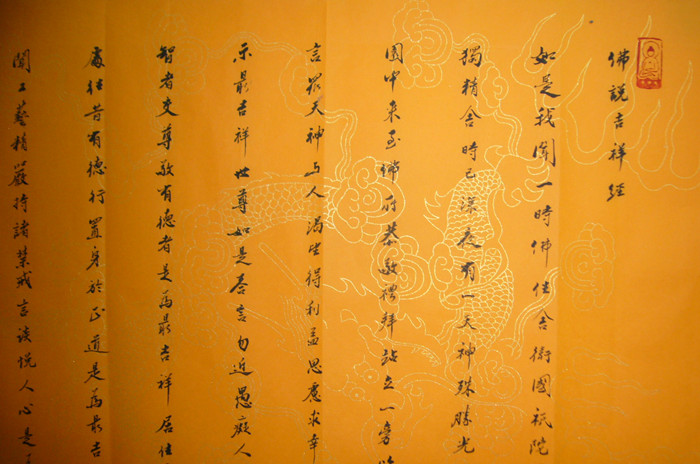 佛說吉祥經
如是我聞一時佛住舍衛國祇陀
獨精舍時已深夜有一天神殊勝光
園中来至佛府恭敬禮拜站立一旁以
言眾天神与人渴望得利益思慮求幸
示最吉祥世尊如是答言勿近愚癡人
智者交尊敬有德者是為最吉祥居住
處往昔有德行置身於正道是為最吉
聞工藝精嚴持諸禁戒言談悦人心是